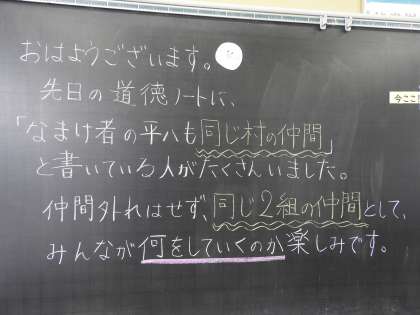 おはようございます。
先日の道徳ノートに、
「なまけ者の平八も同じ村の仲間」
と書いている人がたくさんいました。
仲間外れはせず、同じ2組の仲間として、
みんなが何をしていくのか楽しみです。
今ここ